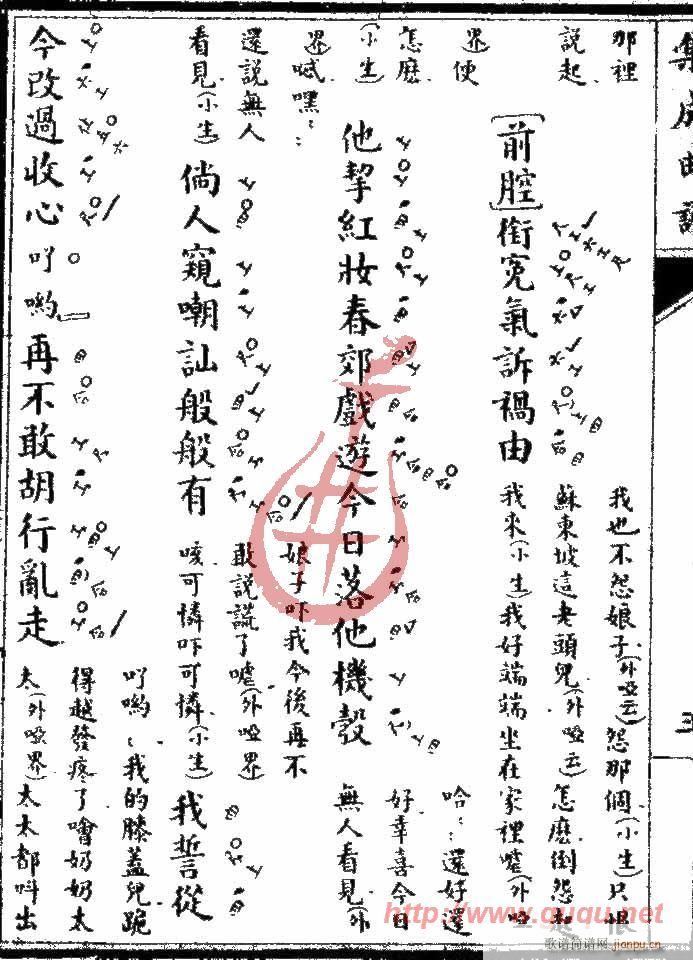 集成曲譜
三
那裡
說起
[前腔]銜冤氣訴禍由
我也不怨娘子(外啞云)怨那個(小生)只恨
蘇東坡這老頭兒(外啞云)怎麼倒怨起
我來(小生)我好端端坐在家裡噓(外啞
界便
怎麼
(小生)
他挈紅妝春郊戲遊今日落他機彀
哈：還好還
好幸喜今日
無人看見(外
界喊嘿：：
還說無人
看見(小生)
倘人窺嘲訕般般有
娘子吓我今後再不
敢說謊了噓(外啞界
咳可憐吓可憐(小生)
我誓從
今改過收心吖喲再不敢胡行亂走
吖喲：我的膝蓋兒跪
得越發疼了噲奶奶太
太(外啞界)太太都呌出
http://www.ququ.net
歌谱简谱网
jianpu.cn